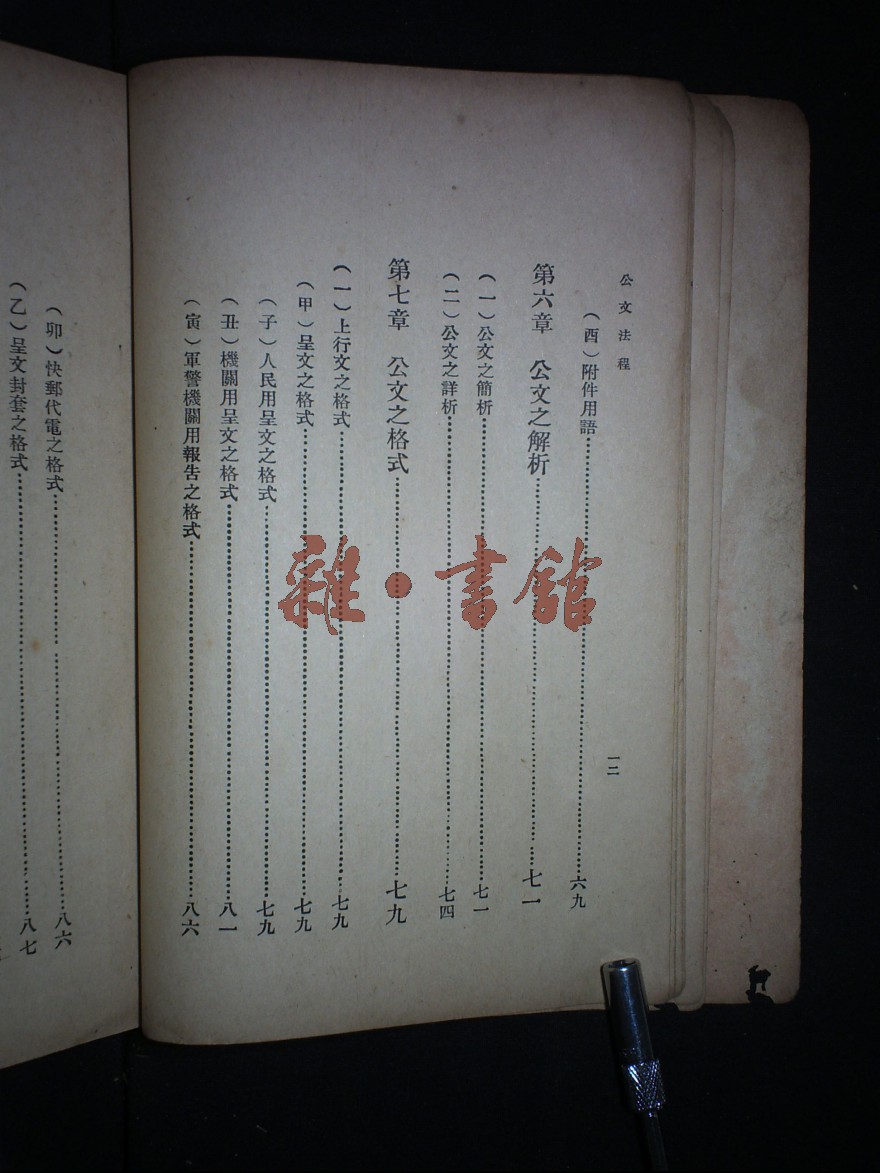 公文法程
一二
（酉）附件用語……六九
第六章　公文之解析……七一
（一）公文之簡析……七一
（二）公文之詳析……七四
第七章　公文之格式……七九
（一）上行文之格式……七九
（甲）呈文之格式……七九
（子）人民用呈文之格式……七九
（丑）機關用呈文之格式……八一
（寅）軍警機關用報告之格式……八六
（卯）快郵代電之格式……八六
（乙）呈文封套之格式……八七
雜·書館